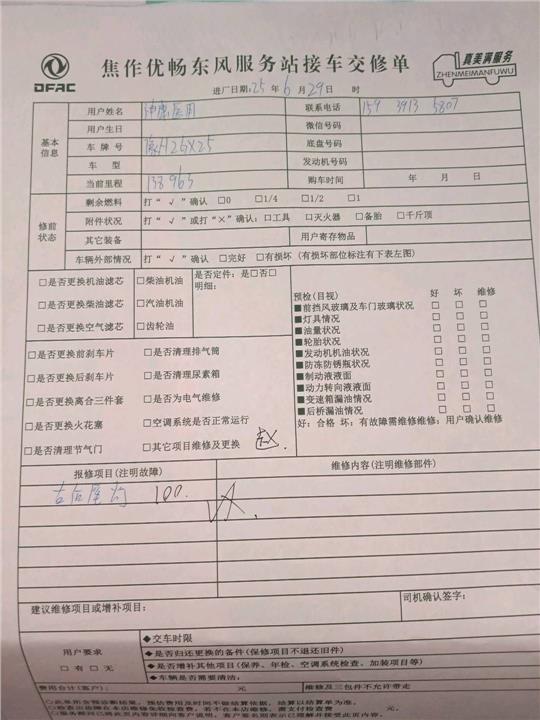 DFAC
焦作优畅东风服务站接车交修单
真美满服务
ZHENMEIMANFUWU
进厂日期:25 年 6 月 29 日 时
基本信息
用户姓名 联系电话 159 3913 5807
用户生日 微信号码
车 牌 号 底盘号码
车 型 发动机号码
当前里程 138963 购车时间 年 月 日
修前状态
剩余燃料 打“√”确认 □0 □1/4 □1/2 □1
附件状况 打“√”或打“×”确认:□工具 □灭火器 □备胎 □千斤顶
其它装备 用户寄存物品
车辆外部情况 打“√”确认 □完好 □有损坏(有损坏部位标注有下表左图)
□是否更换机油滤芯 □柴油机油
□是否更换柴油滤芯 □汽油机油
□是否更换空气滤芯 □齿轮油
是否定件:是□否□
明细:
□是否更换前刹车片 □是否清理排气筒
□是否更换后刹车片 □是否清理尿素箱
□是否更换离合三件套 □是否为电气维修
□是否更换火花塞 □空调系统是否正常运行
□是否清理节气门 □其它项目维修及更换 赵.
预检(目视) 好 坏 维修
■前挡风玻璃及车门玻璃状况 □ □ □
■灯具情况 □ □ □
■油量状况 □ □ □
■轮胎状况 □ □ □
■发动机机油状况 □ □ □
■防冻防锈瓶状况 □ □ □
■制动液液面 □ □ □
■动力转向液液面 □ □ □
■变速箱漏油情况 □ □ □
■后桥漏油情况 □ □ □
好:合格 坏:有故障需维修维修:用户确认维修
报修项目(注明故障) 维修内容(注明维修部件)
100.
建议维修项目或增补项目:
司机确认签字:
用户要求
□有□无
◆交车时限
◆是否归还更换的备件(保修项目不退还旧件)
◆是否增补其他项目(保养、年检、空调系统检查、加装项目等)
◆车辆是否需要清洁:
费用合计(客户): 元 维修及三包件不允许带走